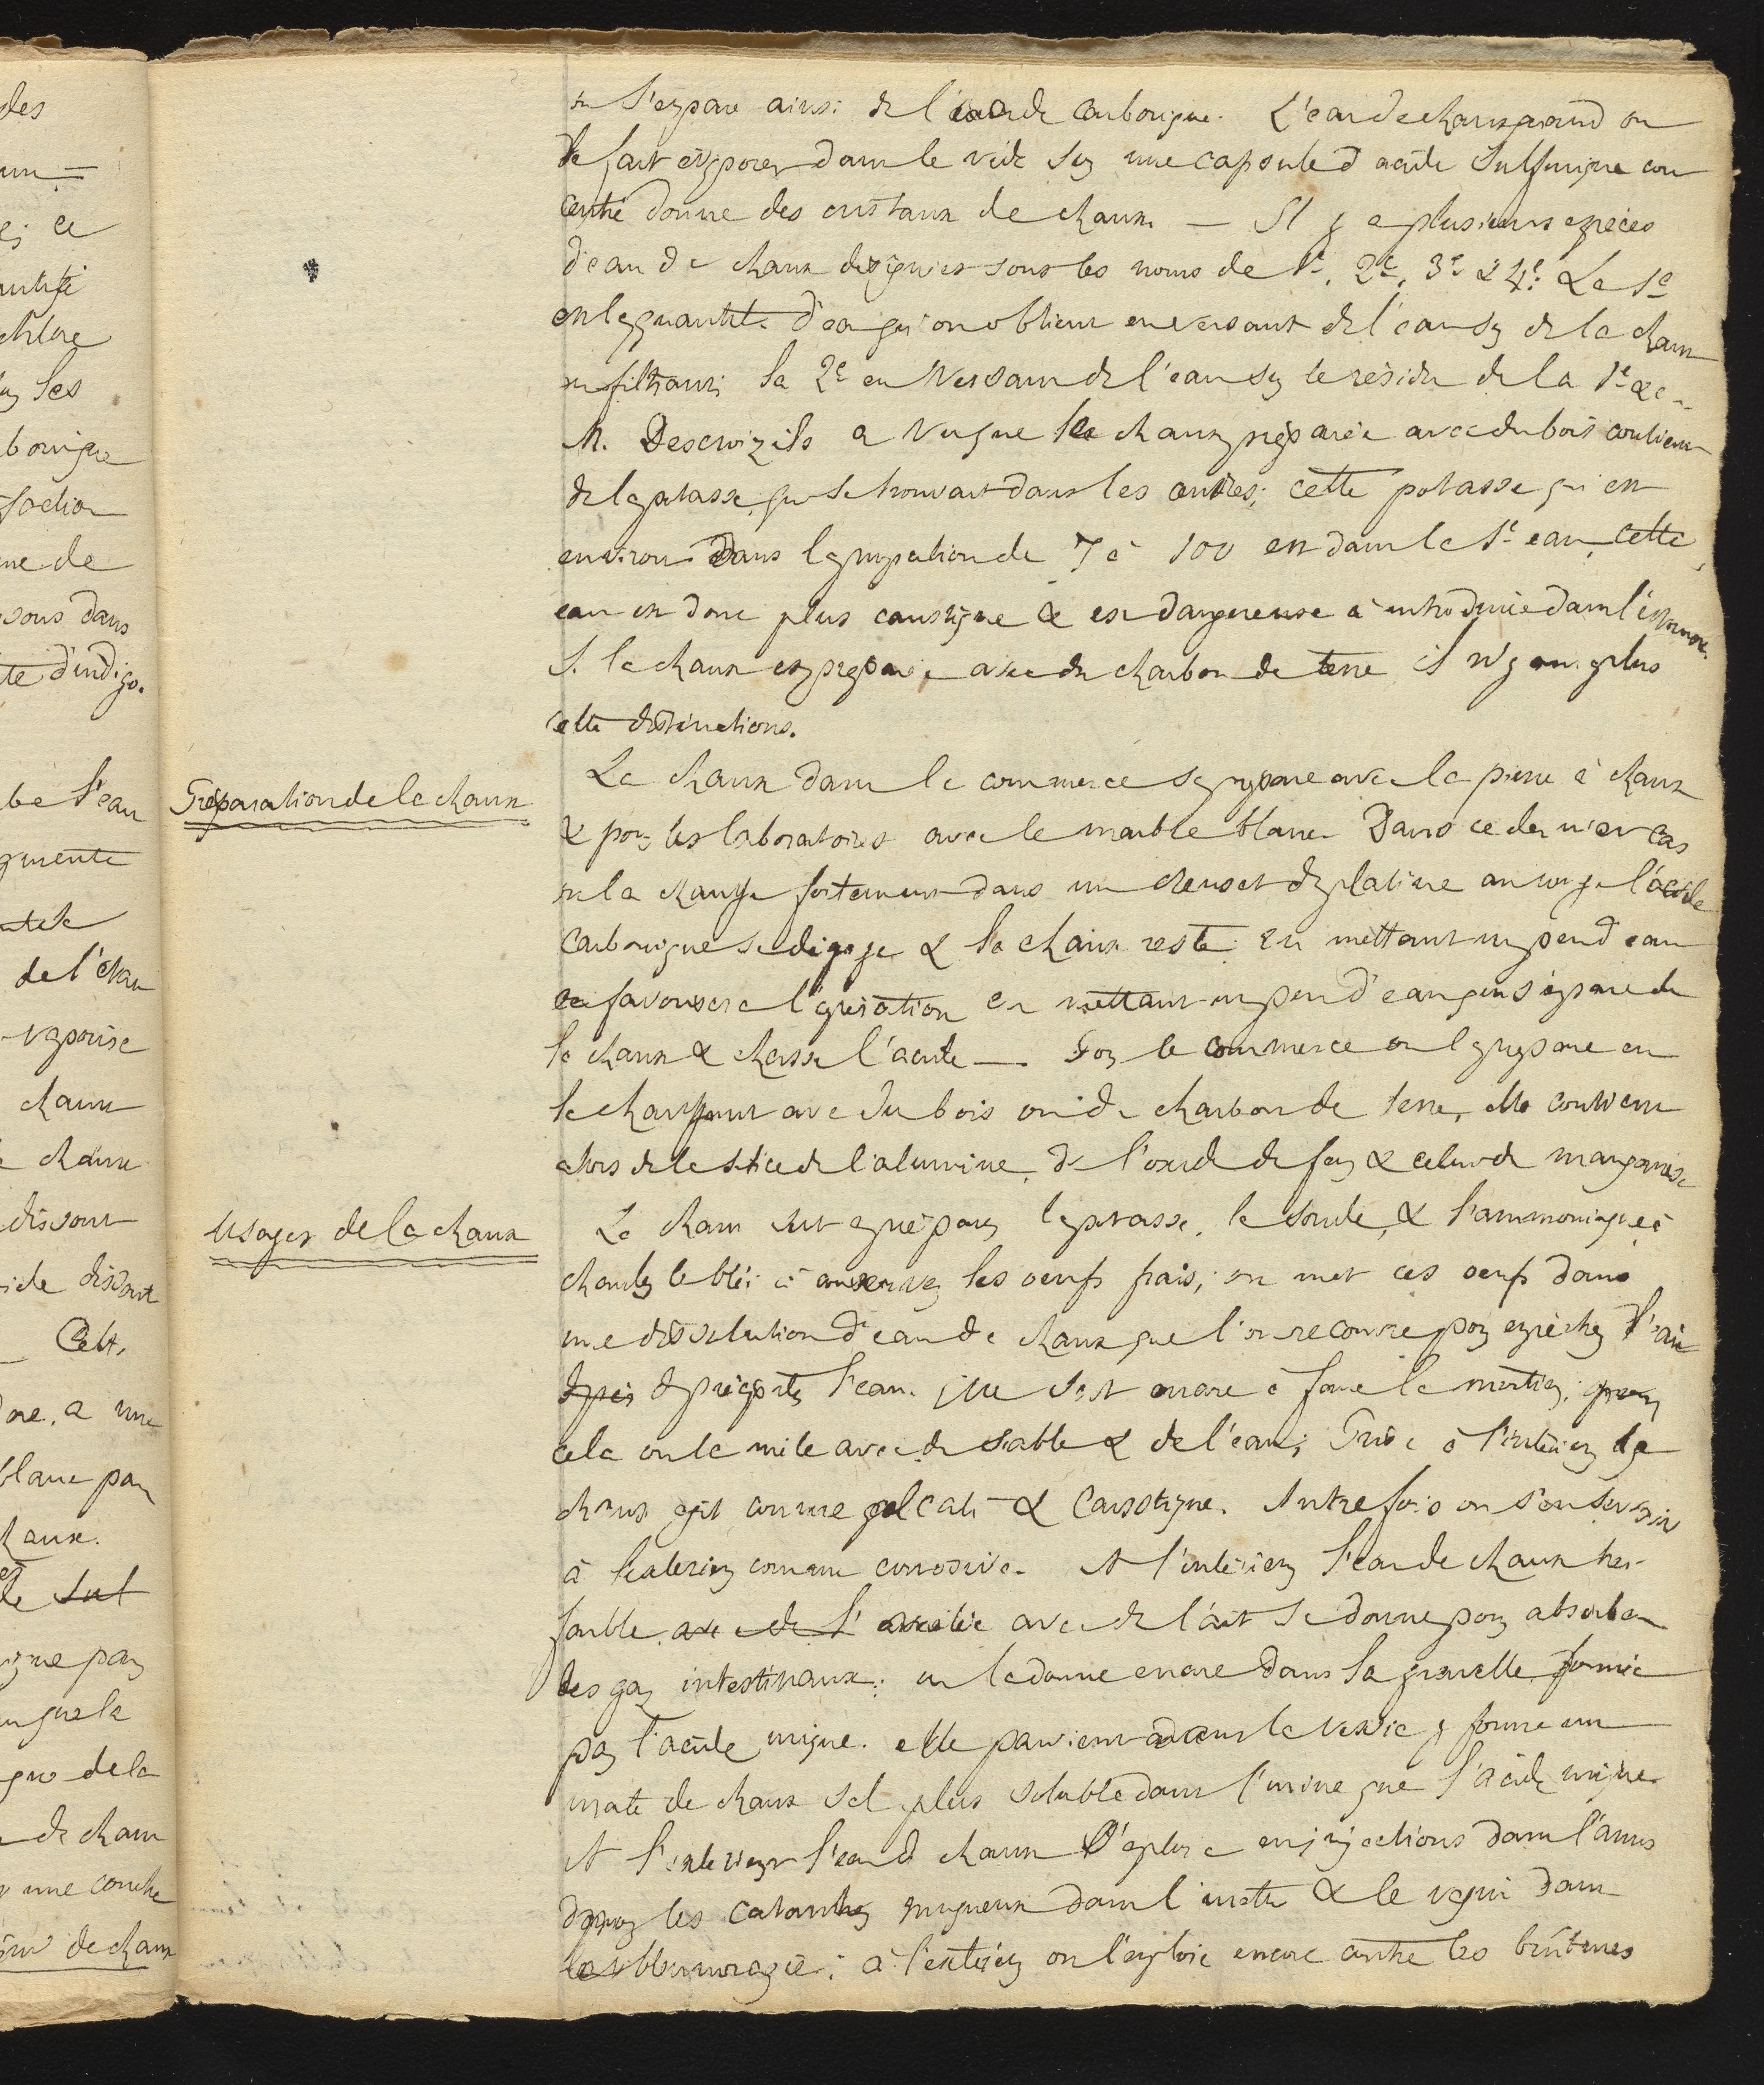 on s'empare ainsi de l'acide carbonique. L'eau de chaux quand on
la fait évaporer dans le vide sur une capsule d'acide sulfurique con
centré donne des cristaux de chaux. — Il y a plusieurs espèces
d'eau de chaux désignées sous les noms de 1e, 2e, 3e & 4e. La 1e
est la quantité d'eau qu'on obtient en versant de l'eau sur de la chaux
en filtrant; la 2e en versant de l'eau sur le résidu de la 1e &c
M. Descroizils a vu que la chaux préparée avec du bois contient
de la potasse qui se trouvait dans les cendres; cette potasse qui est
environ dans la proportion de 7 à 100 est dans la 1e eau, cette
eau est donc plus caustique & est dangereuse à introduire dans l'estomac.
Si la chaux est préparée avec du charbon de terre il n'y a plus
cette distinctions.
Préparation de la chaux
La chaux dans le commerce se prépare avec la pierre à chaux
& pour les laboratoires avec le marbre blanc. Dans ce dernier cas
on la chauffe fortement dans un creuset de platine au rouge l'acide
carbonique se dégage & la chaux reste. en mettant un peu d'eau
on favorisera l'opération en mettant un peu d'eau qui s'empare de
la chaux & chasse l'acide —. Pour le commerce on la prépare en
la chauffant avec du bois ou du charbon de terre, elle contient
alors de la silice de l'alumine, de l'oxide de fer & celui de manganèse
Usages de la chaux
La chaux sert à préparer la potasse, la soude, & l'ammoniaque à
chauler le blé; à conserver les oeufs frais; on met ces oeufs dans
une dissolution d'eau de chaux que l'on recouvre pour empêcher l'air
de précipiter l'eau. Elle sert encore à faire le mortier; pour
cela on la mêle avec du sable & de l'eau; Prise à l'intérieur la
chaux agit comme alcali & caustique. Autrefois on s'en servait
à l'exterieur comme corrosive. A l'intérieur l'eau de chaux très
faible, avec de l' mêlée avec du lait se donne pour absorber
les gaz intestinaux; on la donne encore dans la gravelle formée
par l'acide urique. elle parvient dans la vessie y forme un
urate de chaux sel plus soluble dans l'urine que l'acide urique.
A l'exterieur l'eau de chaux s'emploie en injections dans l'anus
dans les catarrhes muqueux dans l'urètre & le vagin dans
la blennoragie; à l'extérieur on l'emploie encore contre les brûlures
des
d'indigo.
l'eau
de l'eau
vaporise
chaux
dissout
a une
blanc par
de la
de chaux
une couche
de chaux